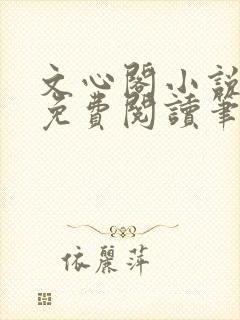 文心閣小說
免費閱讀筆
依麗萍